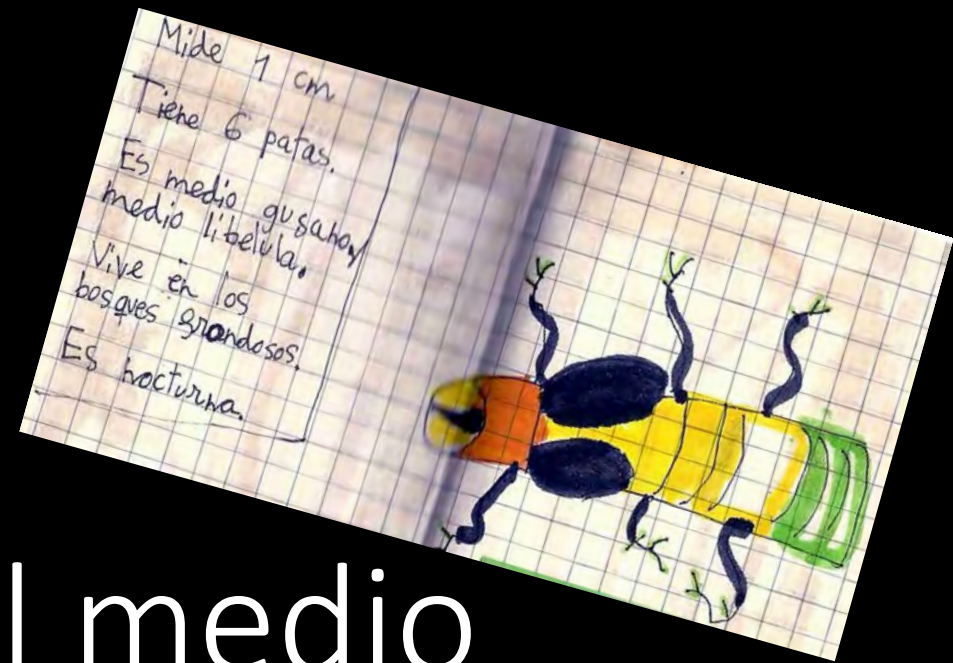 Mide 1 cm
Tiene 6 patas.
Es medio gusano y
medio libelula.
Vive en los
bosques grandosos.
Es nocturna.
l medio